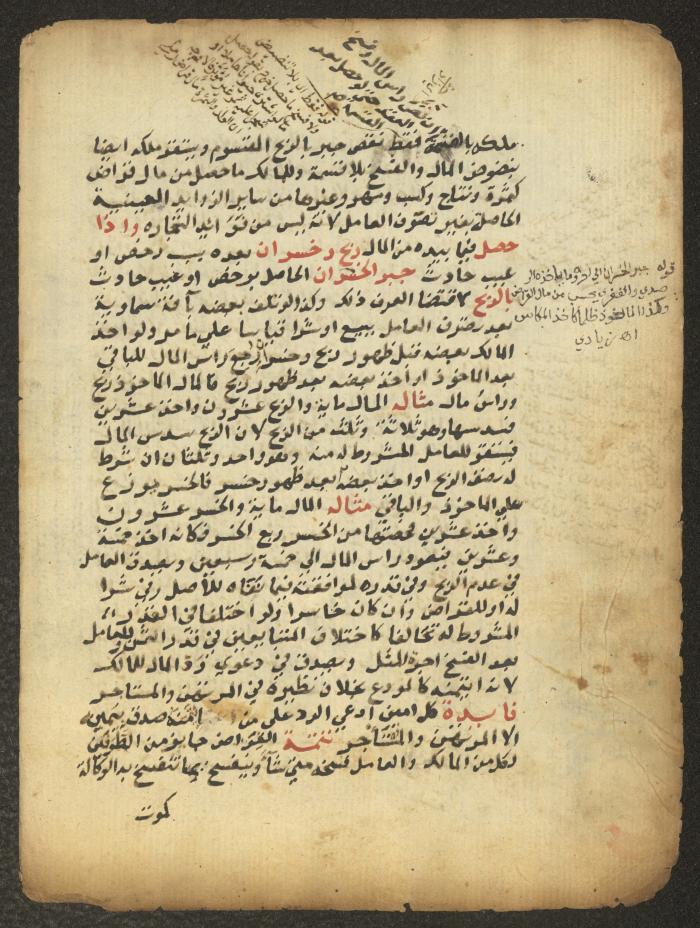 ملكه بالقسمة فقط نقص جبر بالربح المقسوم ويستقر ملكه ايضا
بنضوض المال والفسخ بلا قسمة وللمالك ما حصل من مال قراض
كثمرة ونتاج وكسب ومهر وغيرها من ساير الزوايد العينية
الحاصل بغير تصرف العامل لانه ليس من فوائد التجارة واذا
حصل فيما بيده من المال ربح وخسران بعده بسبب رخص او
عيب حادث جبر الخسران الحاصل برخص او عيب حادث
بالربح لاقتضا العرف ذلك وكذا لو تلف بعضه بآفة سماوية
بعد تصرف العامل ببيع او شرا قياسا على ما مر ولو اخذ
المالك بعضه قبل ظهور ربح وخسر رجع راس المال للباقي
بعد الماخوذ او اخذ بعضه بعد ظهور ربح فالمال الماخوذ ربح
وراس مال مثاله المال ماية والربح عشرون واخذ عشرين
فسدسها وهو ثلاثة وثلث من الربح لان الربح سدس المال
فيستقر للعامل المشروط له منه وهو واحد وثلثان ان شرط
له نصف الربح او اخذ بعضه بعد ظهور خسر فالخسر موزع
على الماخوذ والباقي مثاله المال ماية والخسر عشرون
واخذ عشرين فحصتها من الخسر ربع الخسر فكانه اخذ خمسة
وعشرين فيعود راس المال الى خمسة وسبعين ويصدق العامل
في عدم الربح وفي قدره لموافقته فيما نفاه للاصل وفي شرا
له او للقراض وان كان خاسرا ولو اختلفا في القدر
المشروط له تحالفا كاختلاف المتبايعين في قدر الثمن وللعامل
بعد الفسخ اجرة المثل ويصدق في دعوى رد المال للمالك
لانه ائتمنه كالمودع بخلاف نظيره في المرتهن والمستاجر
فايدة كل امين ادعى الرد على من ائتمنه صدق بيمينه
الا المرتهن والمستاجر تتمة القراض جايز من الطرفين
لكل من المالك والعامل فسخه متى شاء وينفسخ بما تنفسخ به الوكالة
كموت
قوله جبر الخسران الى اخره وما ياخذه
يحسب من مال القراض
وكذا الماخوذ ظلما كاخذ المكاس
اهـ زيادي